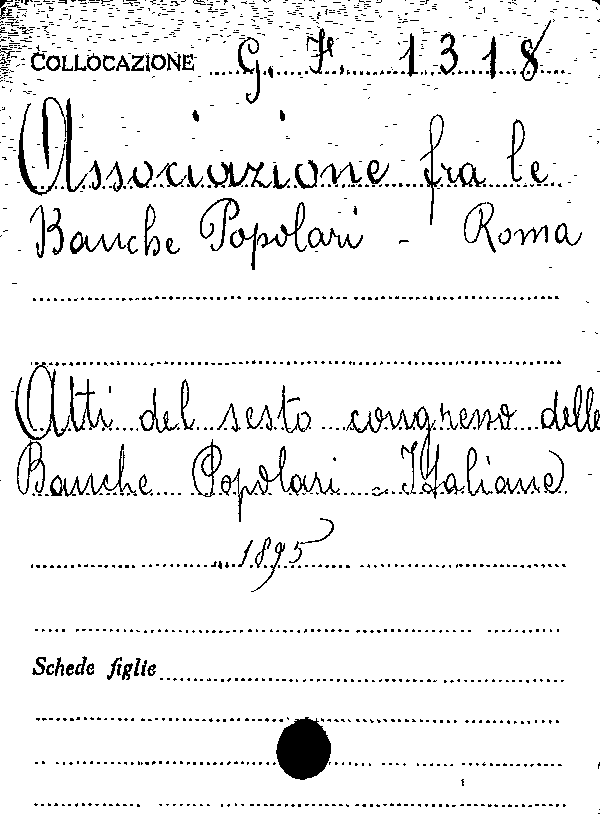 COLLOCAZIONE G. F. 1318
Associazione fra le
Banche Popolari - Roma
Atti del sesto congresso delle
Banche Popolari - Italiane
1895
Schede figlie